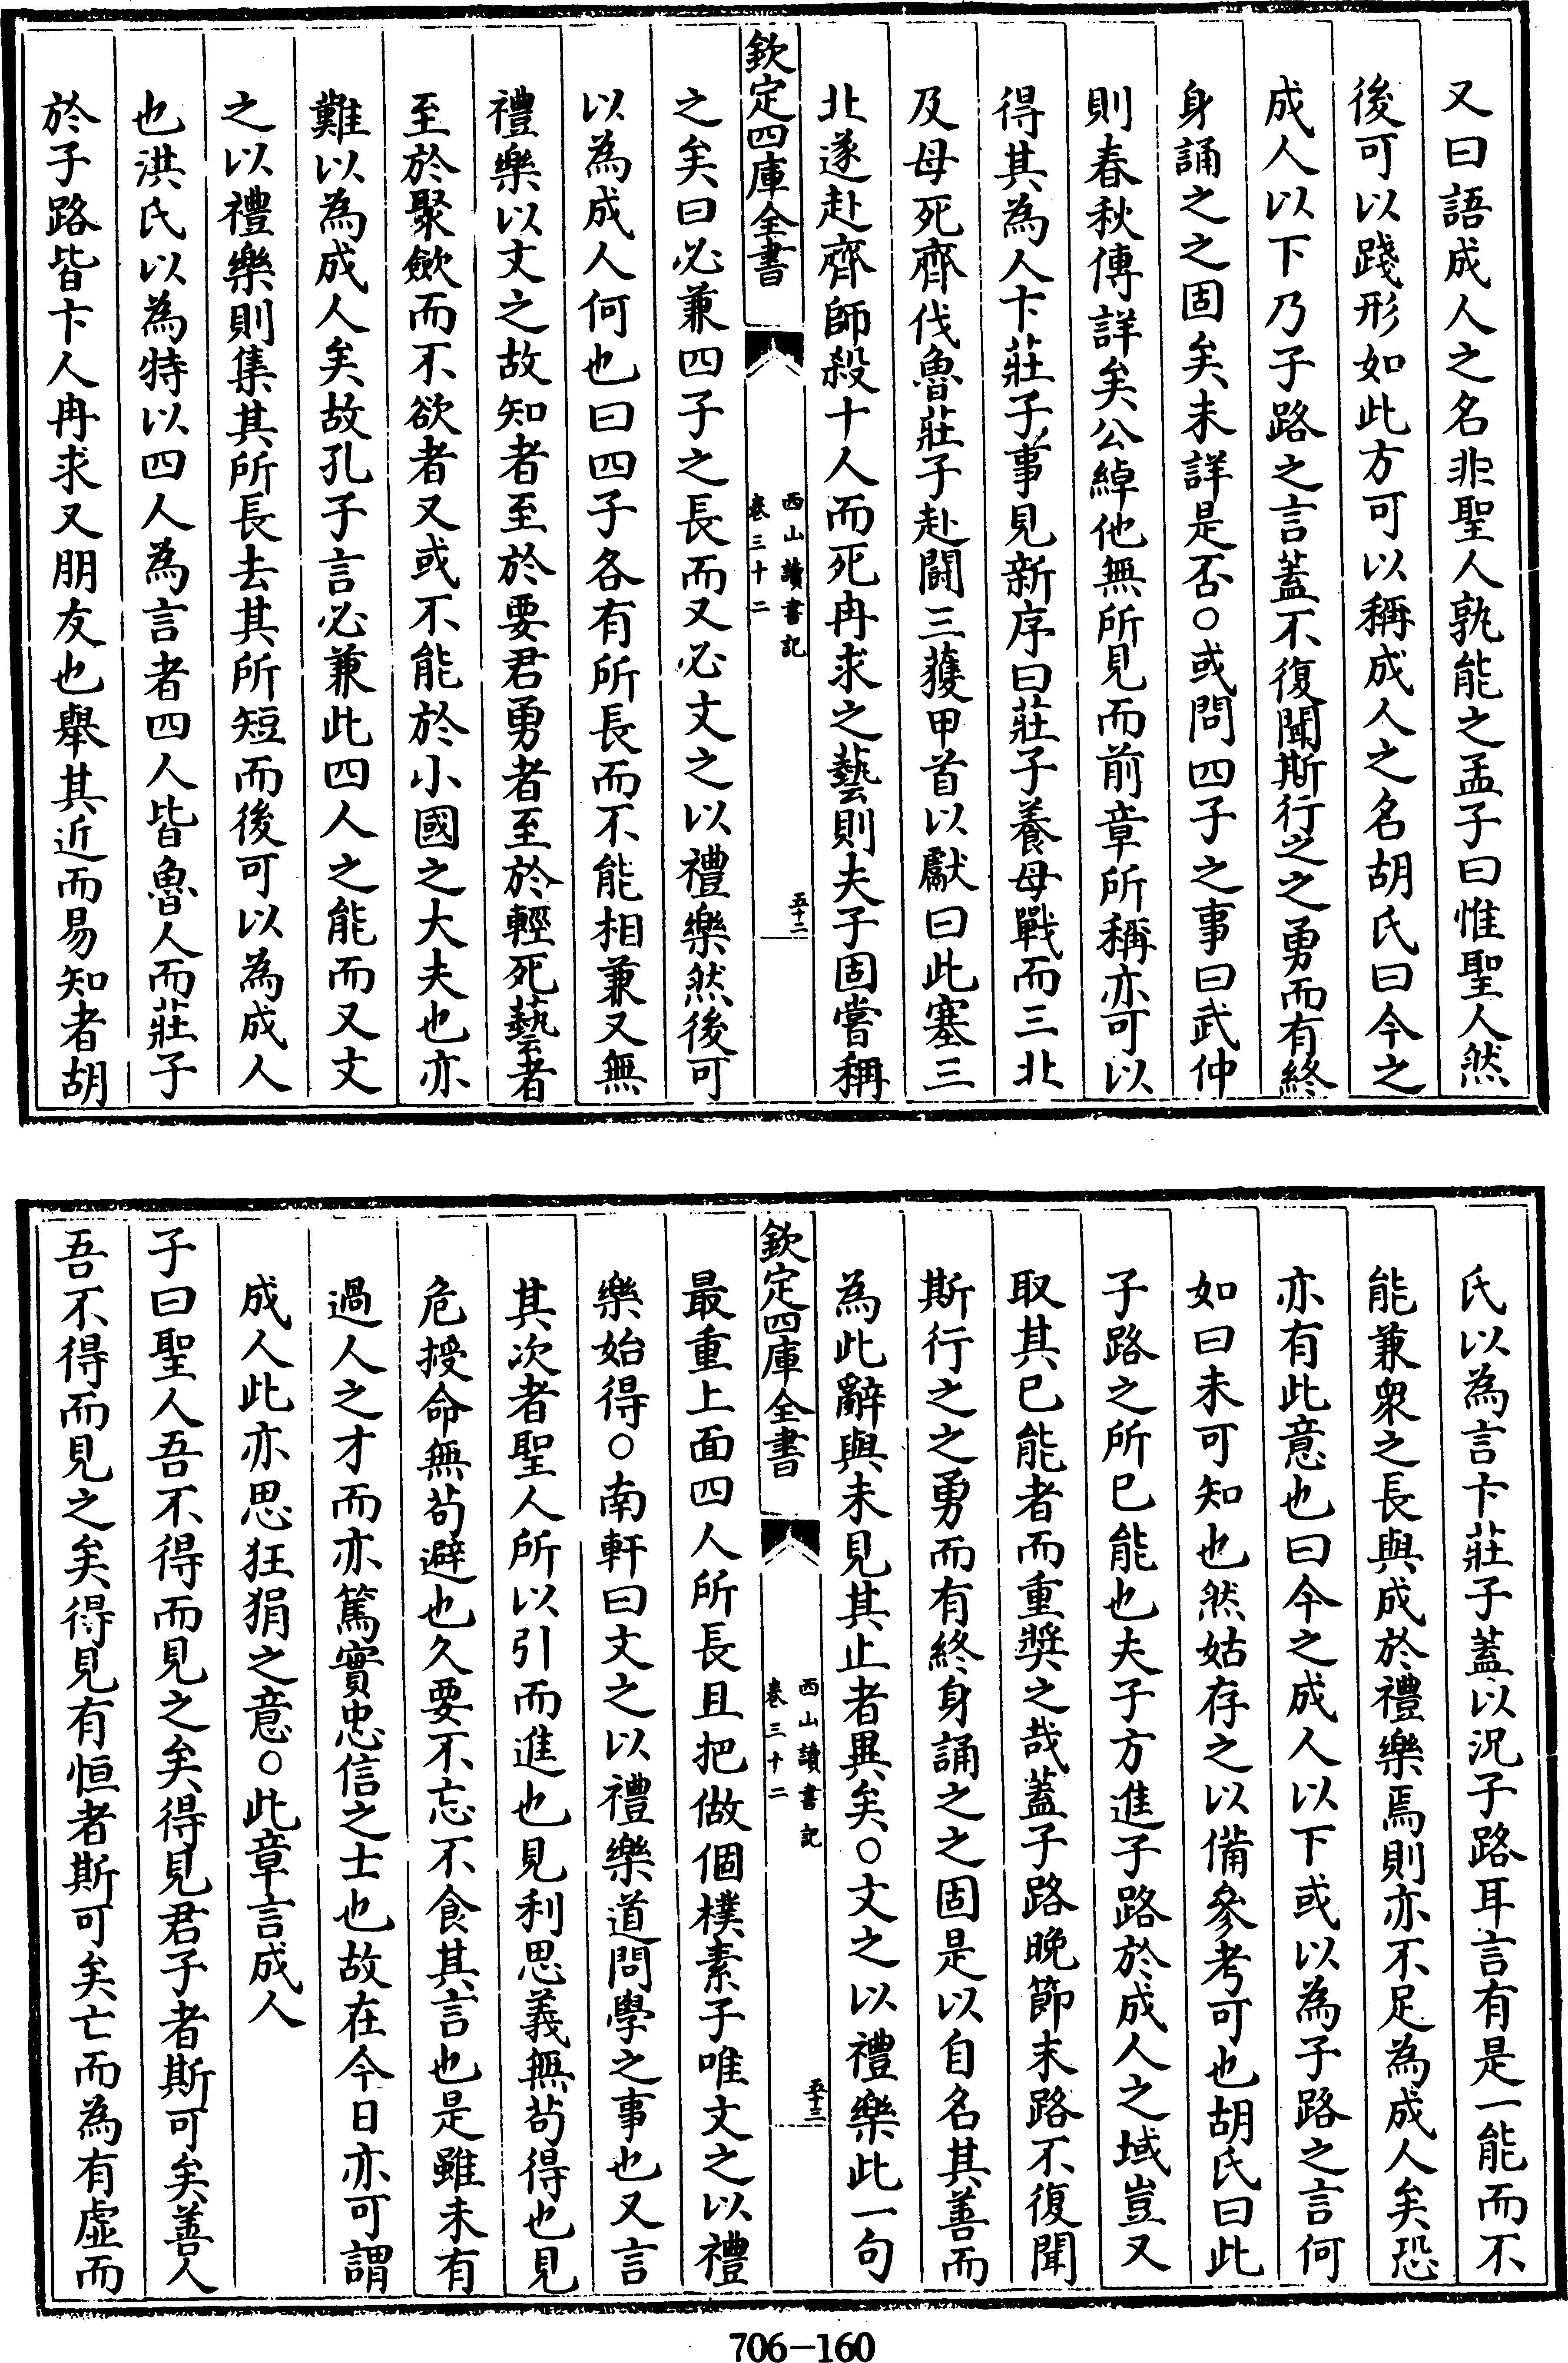 又曰語成人之名非聖人孰能之孟子曰惟聖人然
後可以踐形如此方可以稱成人之名胡氏曰今之
成人以下乃子路之言蓋不復聞斯行之之勇而有終
身誦之之固矣未詳是否○或問四子之事曰武仲
則春秋傳詳矣公綽他無所見而前章所稱亦可以
得其為人卞莊子事見新序曰莊子養母戰而三北
及母死齊伐魯莊子赴鬭三獲甲首以獻曰此塞三
北遂赴齊師殺十人而死冉求之藝則夫子固嘗稱
欽定四庫全書
西山讀書記
卷三十二
五十二
之矣曰必兼四子之長而又必文之以禮樂然後可
以為成人何也曰四子各有所長而不能相兼又無
禮樂以文之故知者至於要君勇者至於輕死藝者
至於聚歛而不欲者又或不能於小國之大夫也亦
難以為成人矣故孔子言必兼此四人之能而又文
之以禮樂則集其所長去其所短而後可以為成人
也洪氏以為特以四人為言者四人皆魯人而莊子
於子路皆卞人冉求又朋友也舉其近而易知者胡
氏以為言卞莊子蓋以況子路耳言有是一能而不
能兼衆之長與成於禮樂焉則亦不足為成人矣恐
亦有此意也曰今之成人以下或以為子路之言何
如曰未可知也然姑存之以備參考可也胡氏曰此
子路之所已能也夫子方進子路於成人之域豈又
取其已能者而重奬之哉蓋子路晚節末路不復聞
斯行之之勇而有終身誦之之固是以自名其善而
為此辭與未見其止者異矣○文之以禮樂此一句
欽定四庫全書
西山讀書記
卷三十二
五十三
最重上面四人所長且把做個樸素子唯文之以禮
樂始得○南軒曰文之以禮樂道問學之事也又言
其次者聖人所以引而進也見利思義無茍得也見
危授命無茍避也久要不忘不食其言也是雖未有
過人之才而亦篤實忠信之士也故在今日亦可謂
成人此亦思狂狷之意○此章言成人
子曰聖人吾不得而見之矣得見君子者斯可矣善人
吾不得而見之矣得見有恒者斯可矣亡而為有虛而
706-160